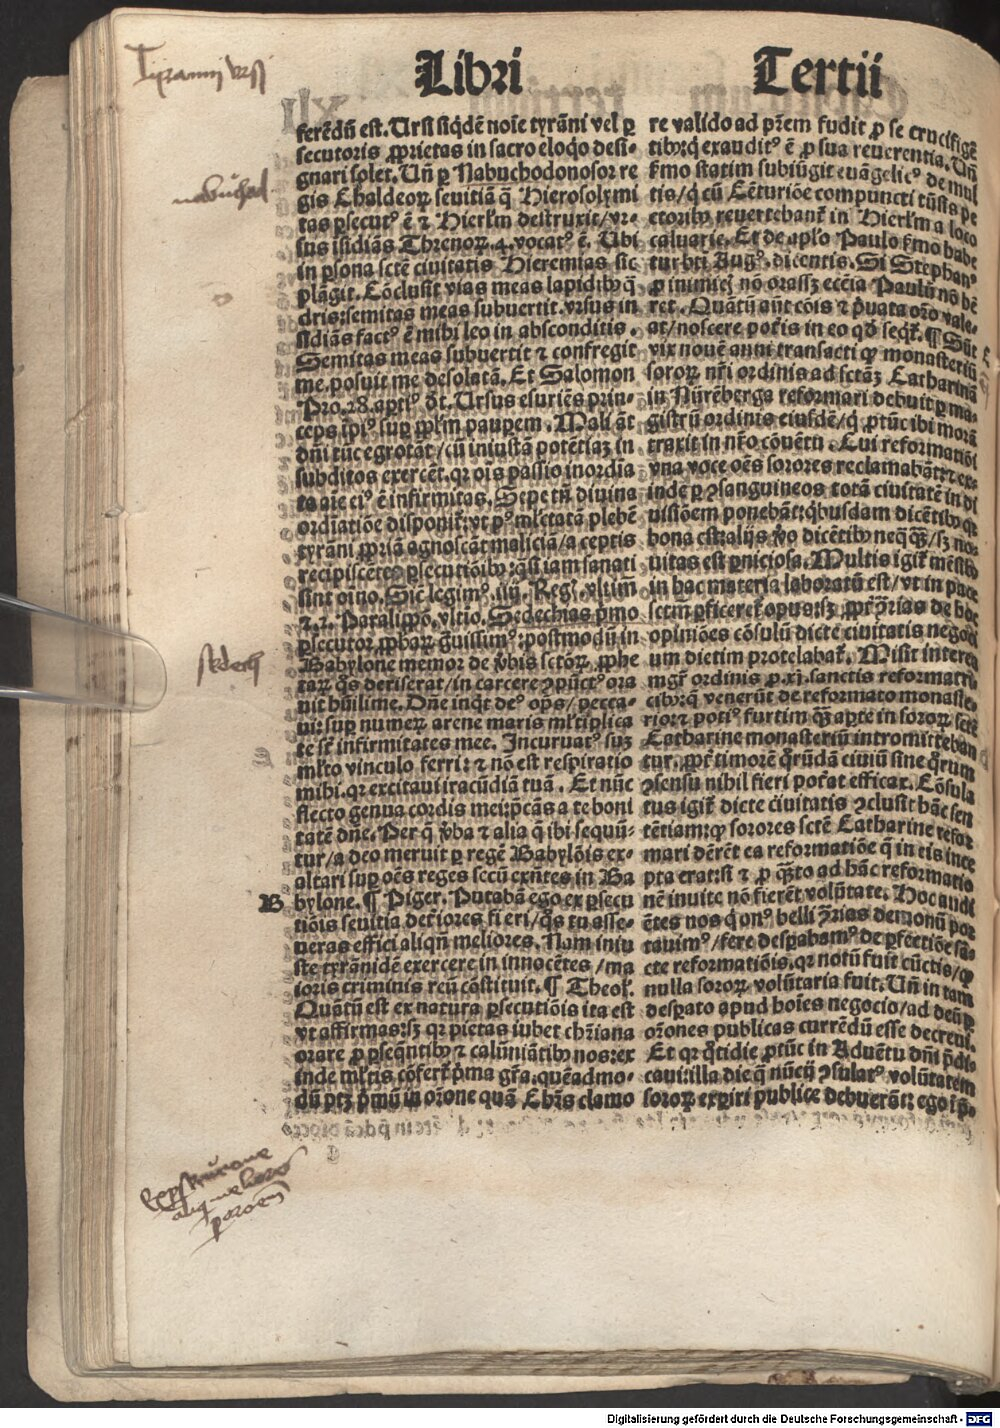 Tyranni ursi
Libri Tertii
nabuchod
ferēdū est. Ursi siqdē noīe tyrāni vel ꝑ
secutoris ꝓprietas in sacro eloqo desi-
gnari solet. Uñ ꝑ Nabuchodonosor re
gis Chaldeoꝝ seuitiā q̄ Hierosolymi
tas ꝑsecut⁹ ē ⁊ Hierl̄m destruxit/vr-
sus īsidiās Threnoꝝ.4. vocat⁹ ē. Ubi
in ꝑsona sctē ciuitatis Hieremias sic
plāgit. Cōclusit vias meas lapidibꝰ q̄
dris: semitas meas subuertit. vrsus in
sidiās fact⁹ ē mihi leo in absconditis.
Semitas meas subuertit ⁊ confregit
me. posuit me desolatā. Et Salomon
Pro. 28. aꝑti⁹ dt. Ursus esuriēs prin-
ceps īpi⁹ suꝑ ppl̄m pauꝑem. Mali āt
dn̄i tūc egrotāt/cū iniustā potētiaʒ in
subditos exercēt. qr oīs passio inordia
ta aīe ei⁹ ē infirmitas. Sepe tñ diuina
ordiatiōe disponit̄: vt p⁹ ml̄tatā plebē
tyrāni ꝓpriā agnoscāt maliciā/a ceptis
recipiscētes ꝑsecutiōibꝰ: q̄si iam sanati
sint oīno. Sic̄ legim⁹. iiij. Regꝝ. vltim̄
⁊.2. Paralippō. vltio. Sedechias p̄mo
ꝑsecutor ꝓphaꝝ g̈uissim⁹: postmodū in
Babylone memor de v̄bis sctōꝝ ꝓphe
taꝝ q̄s deriserat/in carcere ↄpūct⁹ ora
uit hūilime. Dn̄e inq̄t de⁹ op̄s/pecca-
ui: suꝑ numeꝝ arene maris ml̄tiplica
te sт̄ infirmitates mee. Incuruat⁹ suʒ
ml̄to vinculo ferri: ⁊ nō est respiratio
mihi. qr excitaui iracūdiā tuā. Et nūc
flecto genua cordis mei: p̄cās a te boni
tatē dn̄e. Per q̄ v̄ba ⁊ alia q̄ ibi sequū-
tur/a deo meruit ꝑ regē Babylōis ex-
altari suꝑ oēs reges secū exn̄tes in Ba
B bylone. ¶ Piger. Putabā ego ex ꝑsecu
tiōis seuitia deriores fieri/q̄s tu asse-
ueras effici aliqn̄ meliores. Nam iniu
ste tyrānidē exercere in innocētes/ma
ioris criminis reū cōstituit. ¶ Theol̄.
Quātū est ex natura ꝑsecutiōis ita est
vt affirmas: sʒ qr pietas iubet chr̄iana
orare ꝓ ꝑseq̄ntibꝰ ⁊ calūniātibꝰ nos: ex
inde ml̄tis cōfert̄ p̄ma gr̄a. quēadmo-
dū ptʒ p̄mū in orōne quā Chr̄s clamo
re valido ad pr̄em fudit ꝓ se crucifigē
tibꝰ: q exaudit⁹ ē ꝓ sua reuerentia. Uñ
k̄mo statim subiūgit euāgelic⁹ de mul
tis/q cū Cēturiōe compuncti tūsis pe
ctoribꝰ reuertebant̄ in Hierl̄m a loco
caluarie. Et de apl̄o Paulo k̄mo habe
tur bt̄i Aug⁹. dicentis. Si Stephan⁹
ꝓ inimicʒ nō orassʒ ecc̄ia Paulū nō hē
ret. Quātū aūt cōis ⁊ p̄uata orō vale-
at/noscere pot̄is in eo qd̄ seqt̄. ¶ Sūt
vix nouē anni transacti qꝫ monasteriū
soroꝝ nr̄i ordinis ad sctāʒ Catharinā
in Nürēberga reformari debuit ꝑ ma-
gistrū ordinis eiusdē/q ꝓtūc ibi morā
traxit in nr̄o cōuētu. Cui reformatiōi
vna voce oēs sorores reclamabāt: ⁊ ex-
inde ꝑ ↄsanguineos totā ciuitatē in di
uisiōem ponebāt: q̄busdam dicētibꝰ qꝫ
bona est: alijs v̄o dicētibꝰ neq̄q̄ʒ/sʒ no-
uitas est ꝑniciosa. Multis igit̄ mēsibꝰ
in hac materia laboratū est/vt in pace
sctm̄ ꝑficeret̄ opus: sʒ ꝓpt̄ ↄ̄rias de hoc
opiniōes cōsulū dicte ciuitatis negoci
um dietim protelabat̄. Misit interea
mgr̄ ordinis ꝓ. xj. sanctis reformatri-
cibꝰ: q̄ venerūt de reformato monaste-
rio: ⁊ poti⁹ furtim q̄ʒ aꝑte in soroꝝ sctē
Catharine monasteriū intromitteban
tur. ꝓpt̄ timorē q̄rūdā ciuiū sine q̄rum
ↄsensu nihil fieri pot̄at efficax. Cōsula
tus igit̄ dicte ciuitatis ↄclusit hāc sen
tētiam: qꝫ sorores sctē Catharine refor
mari dērēt ea reformatiōe q̄ in eis ince
pta erat: si ⁊ ꝓ q̄ʒto ad hāc reformatio
nē inuite nō fierēt volūtate. Hoc audi
ētes nos q on⁹ belli ↄ̄rias demonū por
tauim⁹/fere desꝑabam⁹ de ꝑfectiōe sā-
cte reformatiōis. qr notū fuit cūctis/qꝫ
nulla soroꝝ volūtaria fuit. Uñ in tam
desꝑato apud hoīes negocio/ad deū ꝑ
orōnes publicas currēdū esse decreui.
Et qr q̄tidie ꝓtūc in Aduētu dn̄i p̄di-
caui: illa die q̄ nūcij ↄsulat⁹ volūtatem
soroꝝ exꝑiri publice debuerāt: ego īp̄-
sedech